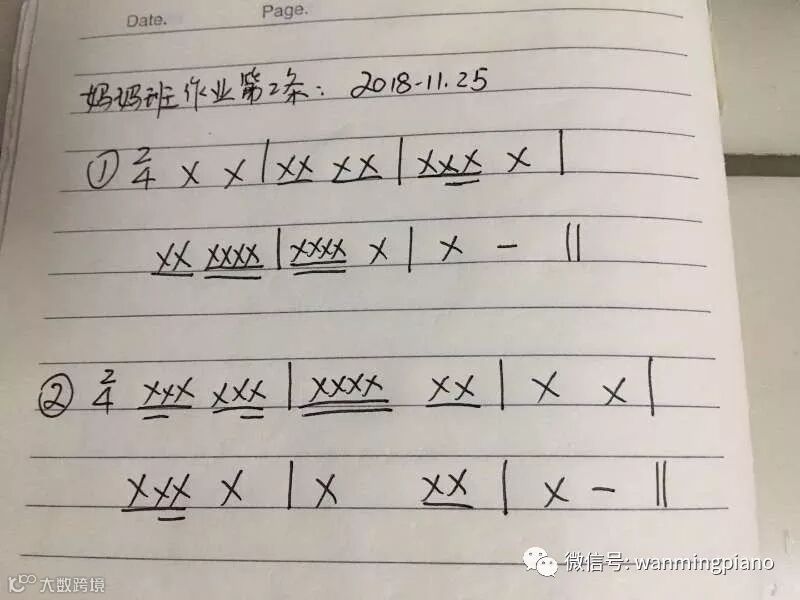 Date. Page.
妈妈班作业第2条: 2018-11.25
① 2/4 X X | XX XX | XXX X |
XX XXXX | XXXX X | X - ||
② 2/4 XXX XXX | XXXX XX | X X |
XXX X | X XX | X - ||
微信号: wanmingpiano
大数跨境